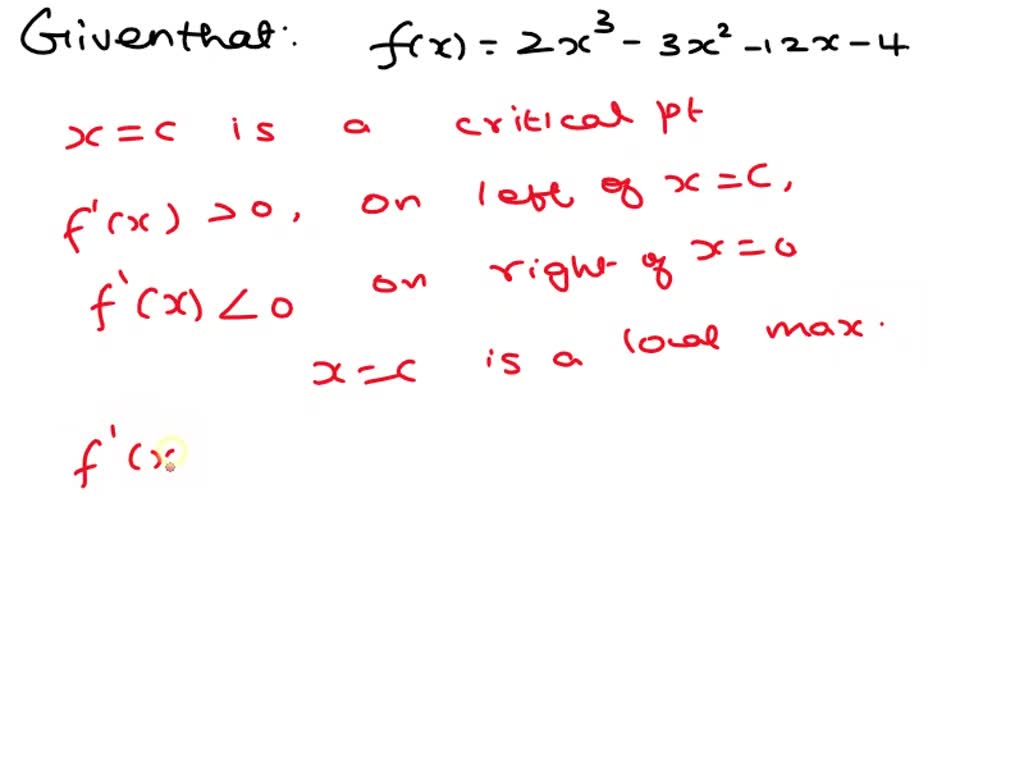 Given that: f(x) = 2x³ - 3x² - 12x - 4
x = c is a critical pt
f'(x) > 0, on left of x = c,
f'(x) < 0 on right of x = 0
x = c is a local max.
f'(x